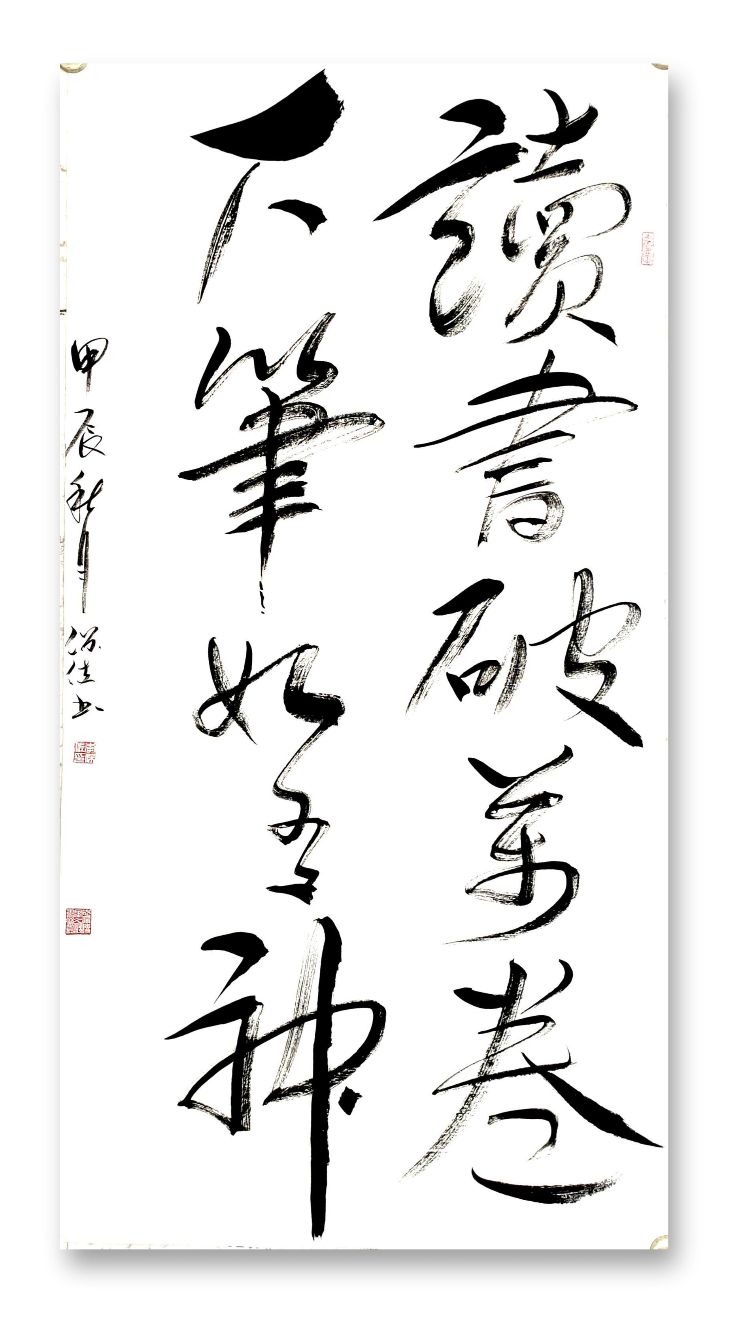 讀書破萬卷
下筆如有神
甲辰秋月
佳書